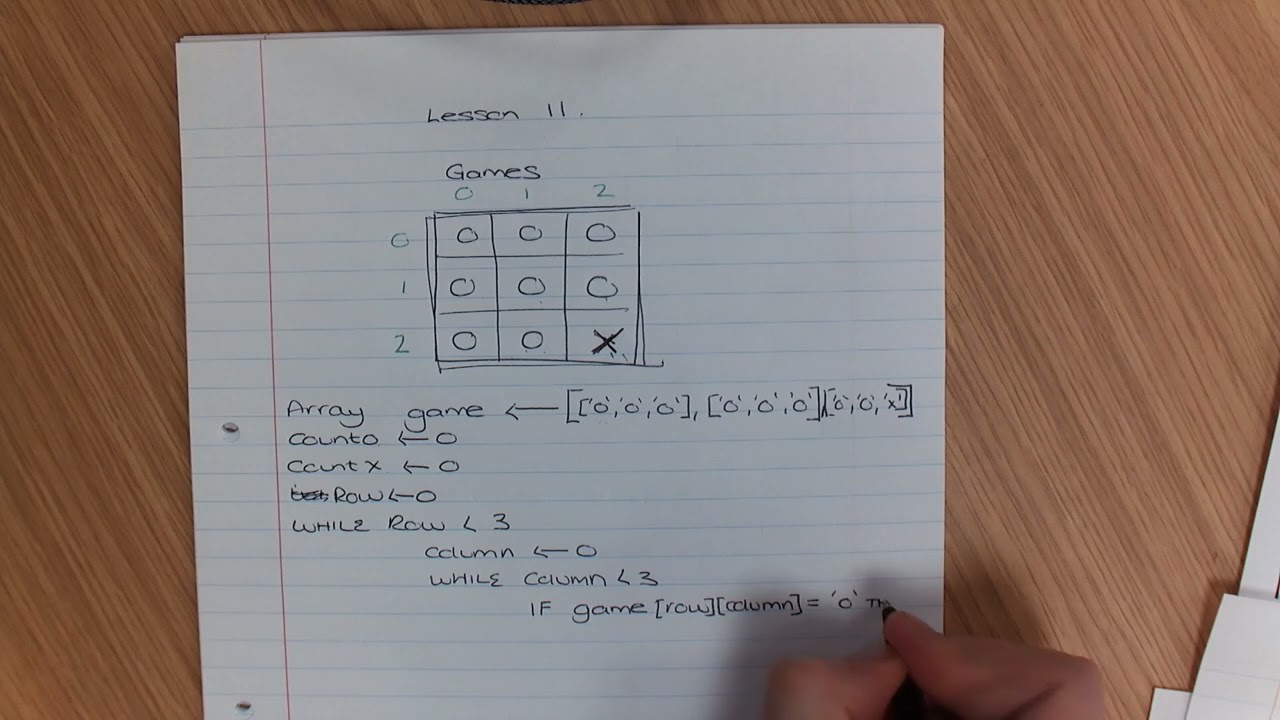 Lesson 11.
Games
0 1 2
0 O O O
1 O O O
2 O O X
Array game ← [['O','O','O'],['O','O','O'],['O','O','X']]
countO ← 0
countX ← 0
Row ← 0
WHILE Row < 3
column ← 0
WHILE column < 3
IF game [row][column] = 'O' TH